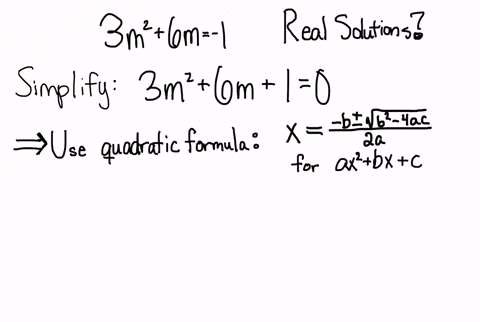 3m²+6m=-1 Real Solutions?
Simplify: 3m²+6m+1=0
⇒ Use quadratic formula: x = (-b±√(b²-4ac))/2a
for ax²+bx+c